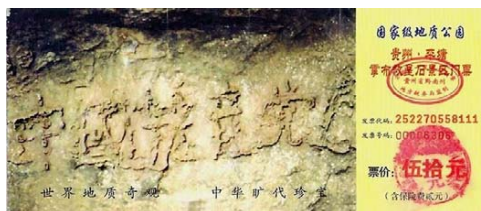 中國共産党
世界地质奇观 中华旷代珍宝
国家级地质公园
贵州·平塘
掌布救星石景区门票
贵州省黔南州
发票代码: 252270558111
发票号码: 00006306
票价: 伍拾元
(含保险费贰元)